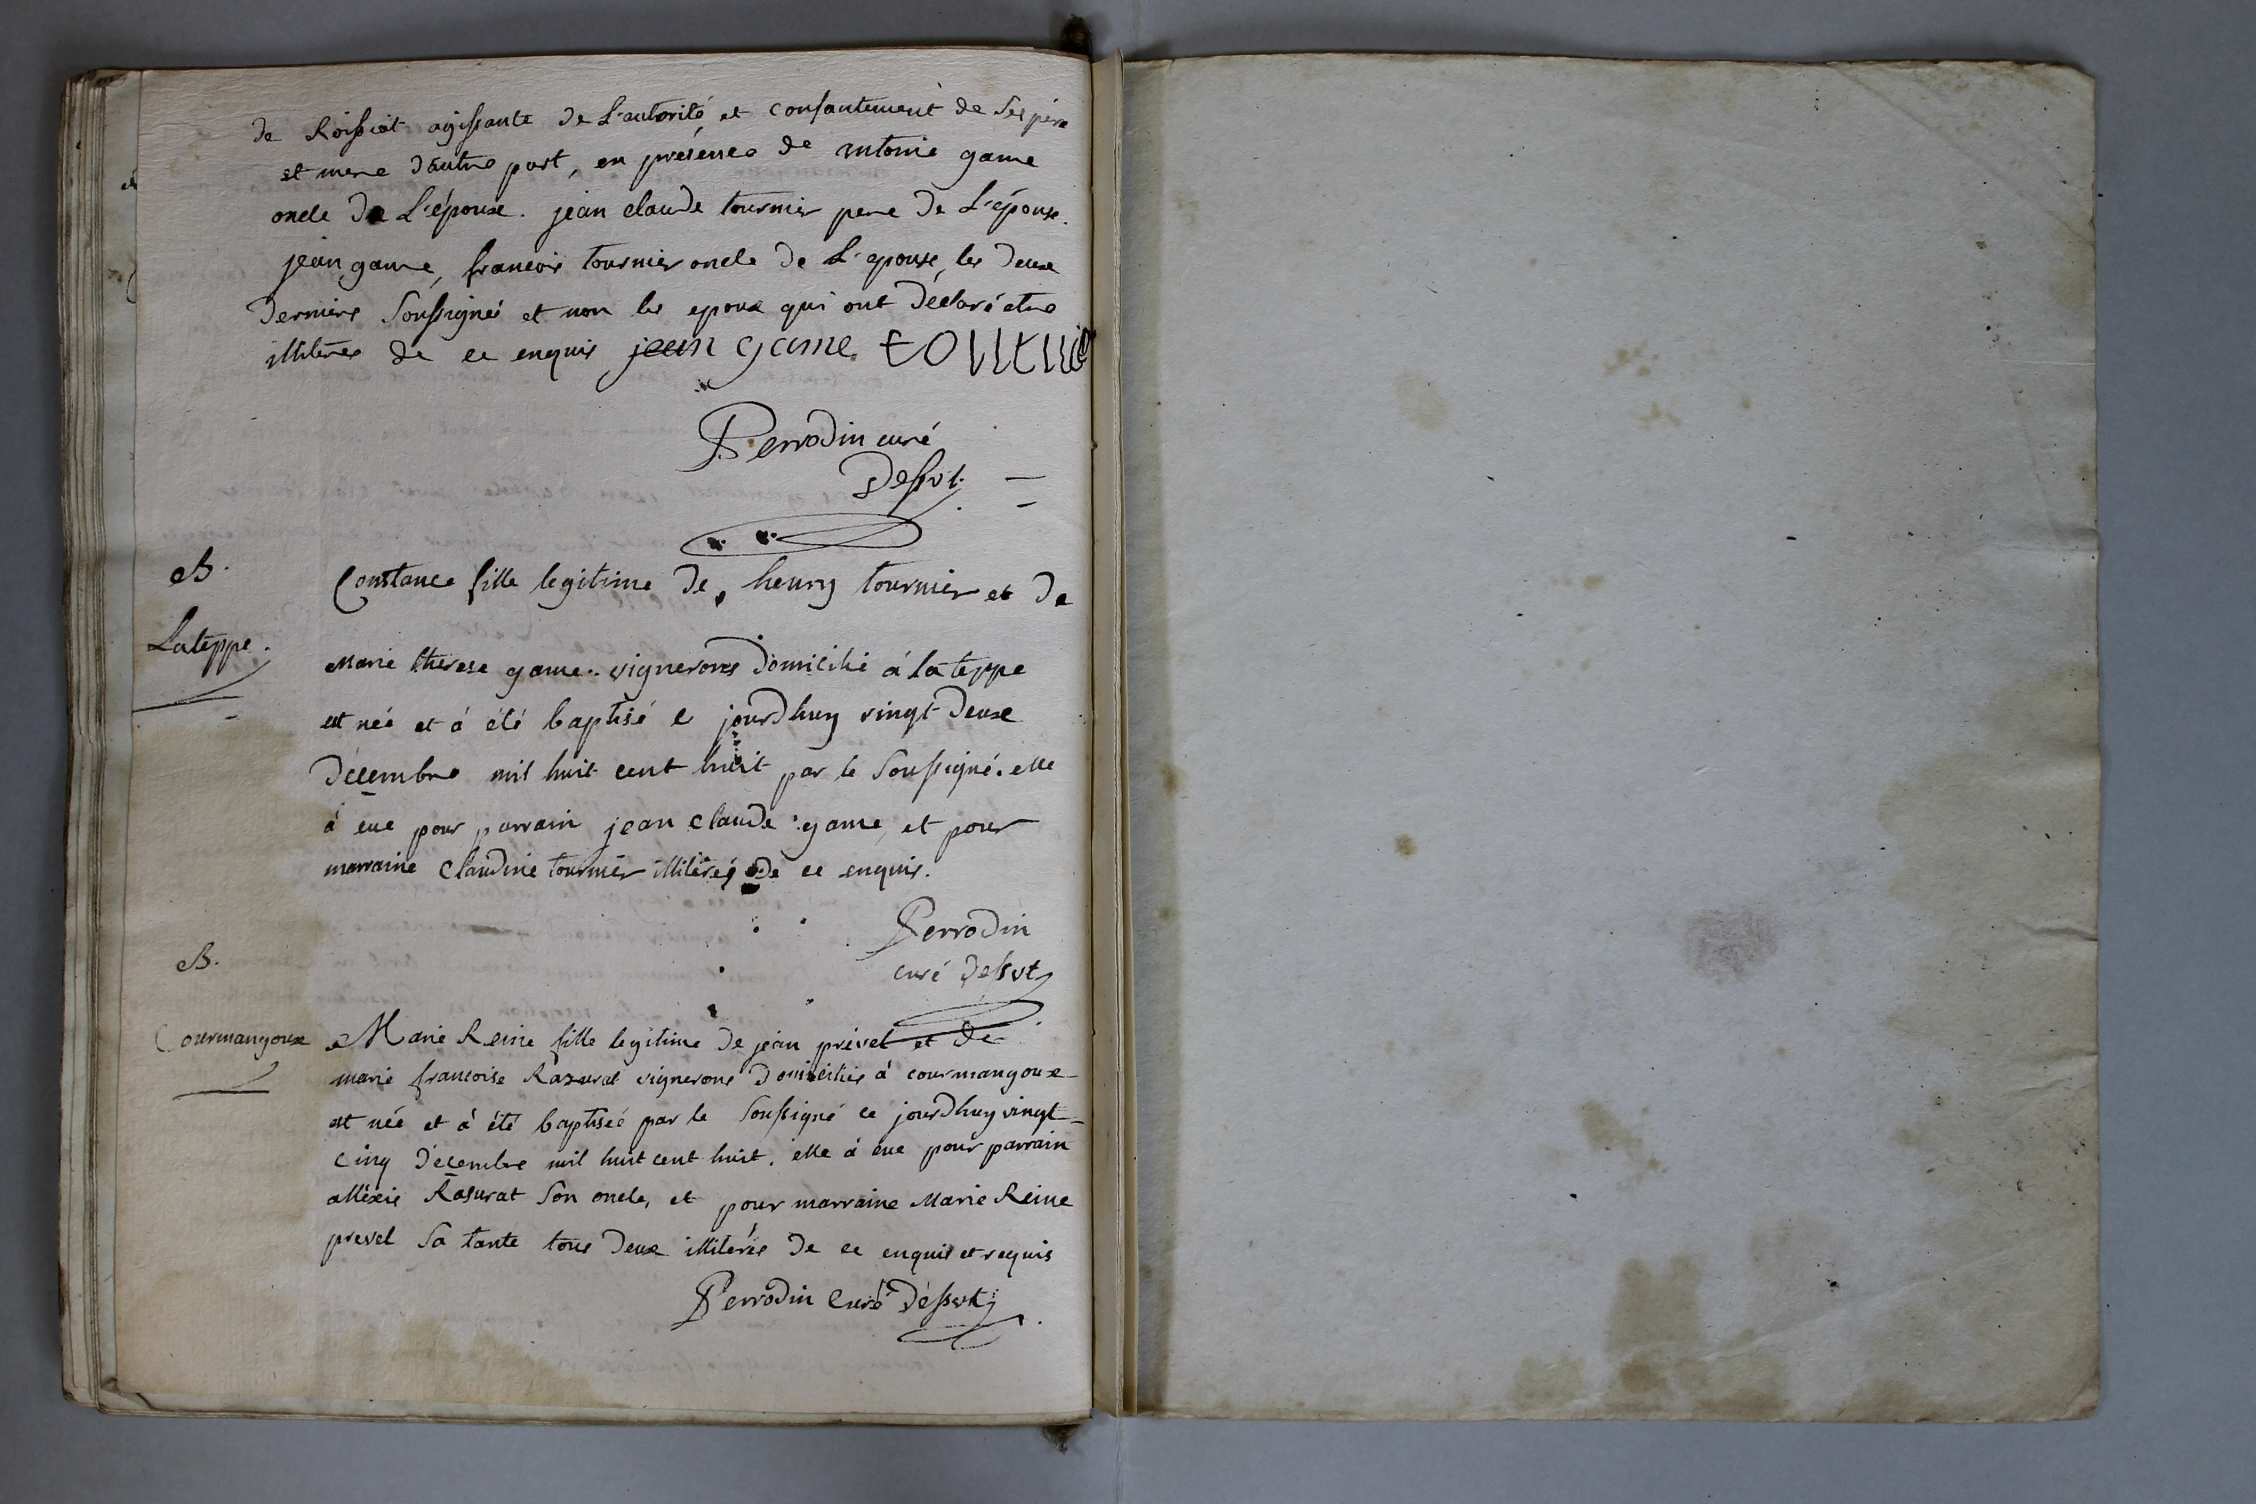 de Roissiat agissante de L'autorité et consantement de Ses père
et mere d'autre part, en présence de antoine game
oncle de L'épouse. jean claude tournier pere de L'épouse.
jean game, francois tournier oncle de L'epouse, les deux
derniers Soussignés et non les epoux qui ont déclaré etre
illiterés de ce enquis jean game tournier
Perrodin curé
Dessvt
B.
Lateppe.
Constance fille legitime de henry tournier et de
Marie therese game. vignerons domicilié à la teppe
est née et à été baptisé ce jourdhuy vingt deux
décembre mil huit cent huit par le Soussigné. elle
à eue pour parrain jean claude game, et pour
marraine Claudine tournier illiterés de ce enquis.
Perrodin
curé dessvt
B.
Courmangoux
Marie Reine fille legitime de jean prevel et de
marie francoise Razurat vignerons domiciliés à courmangoux
est née et à été baptiseé par le Soussigné ce jourdhuy vingt
cinq décembre mil huit cent huit. elle à eue pour parrain
alléxis Rasurat Son oncle, et pour marraine Marie Reine
prevel Sa tante tous deux illiterés de ce enquis et requis
Perrodin Curé Déssvt